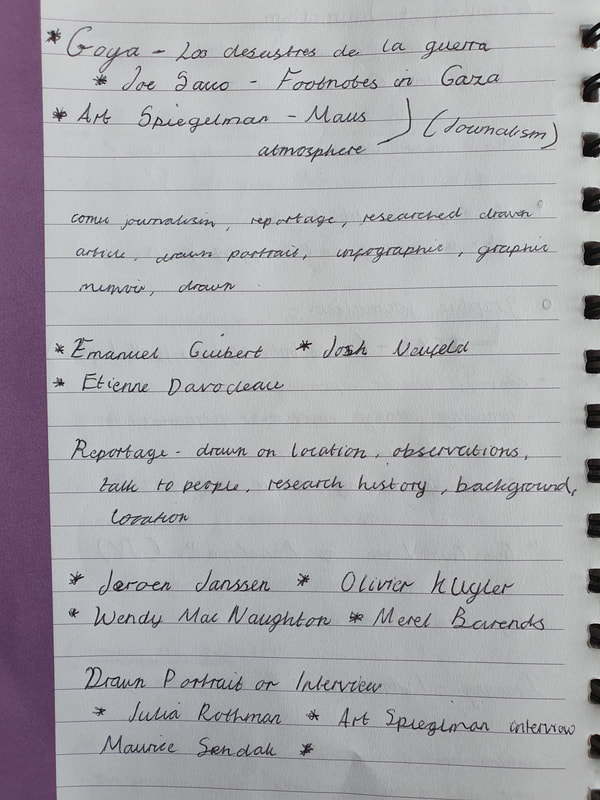 * Goya - Los desastres de la guerra
* Joe Sacco - Footnotes in Gaza
* Art Spiegelman - Maus
atmosphere ) (Journalism)
comic journalism, reportage, researched drawn
article, drawn portrait, infographic, graphic
memoir, drawn
* Emanuel Guibert * Josh Neufeld
* Etienne Davodeau
Reportage - drawn on location, observations,
talk to people, research history, background,
location
* Jeroen Janssen * Olivier Kugler
* Wendy Mac Naughton * Merel Barends
Drawn Portrait or Interview
* Julia Rothman * Art Spieglman interview
Maurice Sendak *